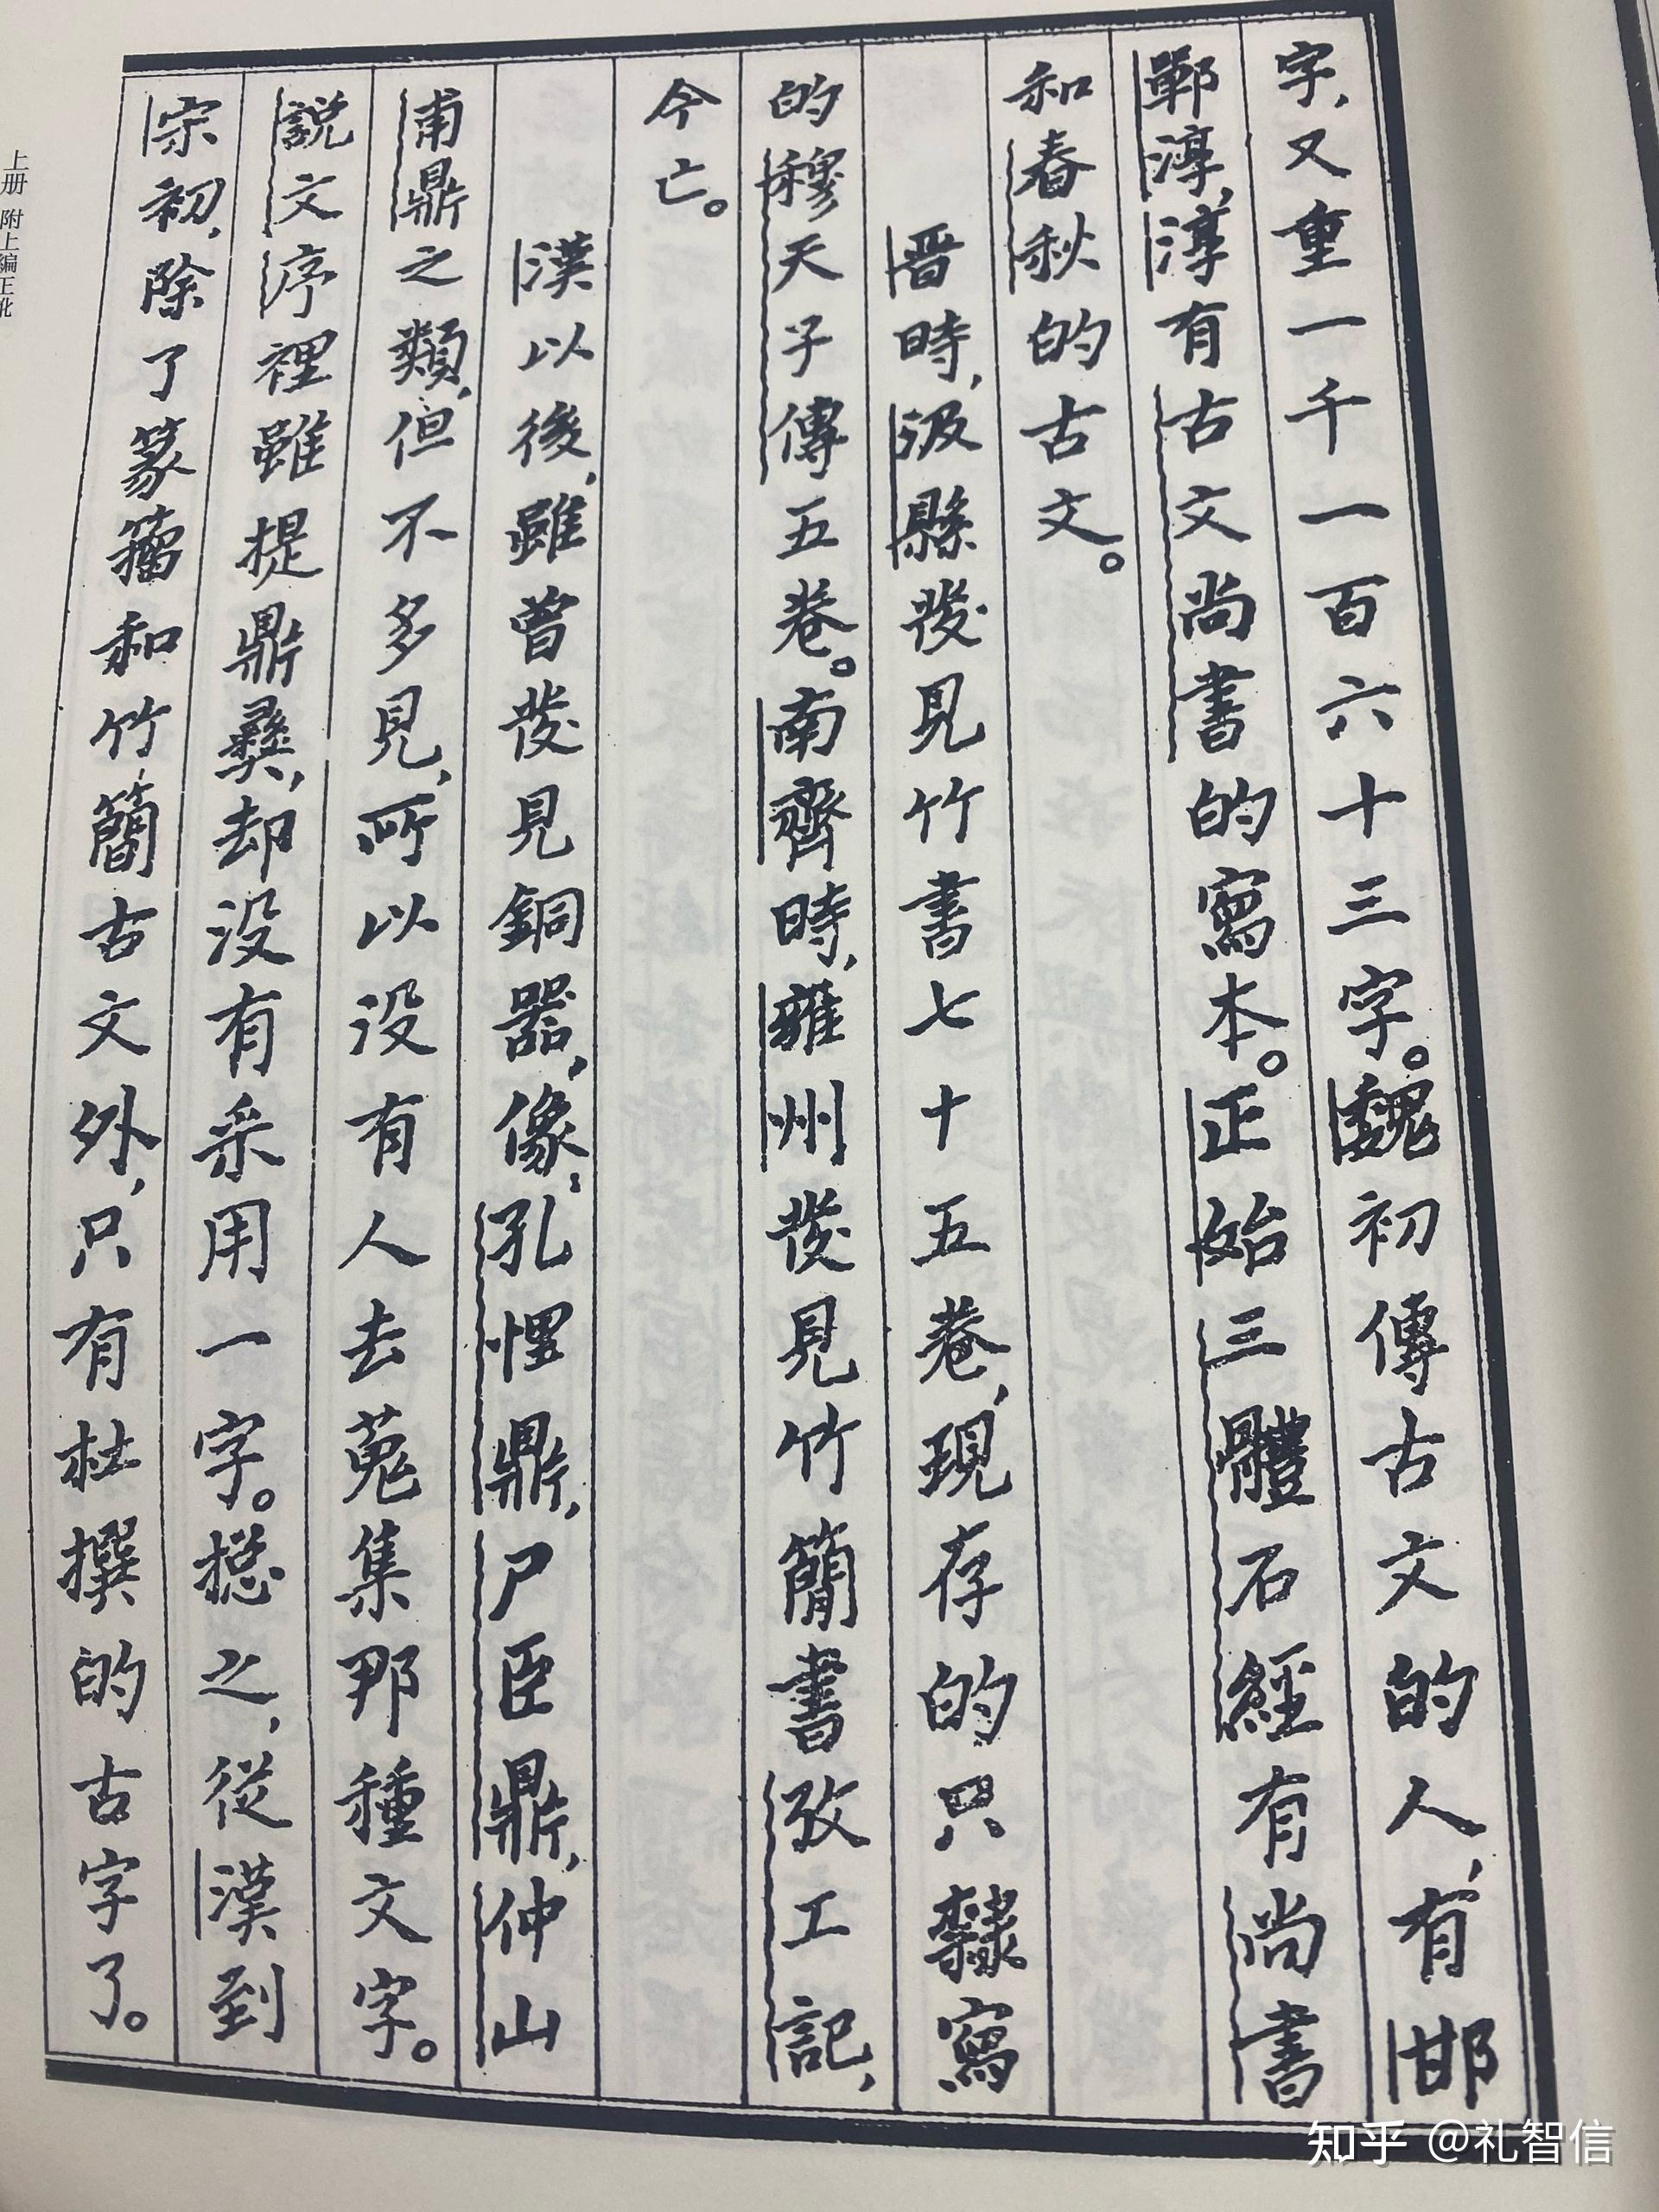 字，又重一千一百六十三字。魏初傳古文的人，有邯
鄲淳，淳有古文尚書的寫本。正始三體石經有尚書
和春秋的古文。
晋時，汲縣發見竹書七十五卷，現存的只隸寫
的穆天子傳五卷。南齊時，雍州發見竹簡書攷工記，
今亡。
漢以後，雖曾發見銅器，像：孔悝鼎，尸臣鼎，仲山
甫鼎之類，但不多見，所以没有人去蒐集那種文字。
説文序裡雖提鼎彝，却没有采用一字。總之，從漢到
宗初，除了篆籀和竹簡古文外，只有杜撰的古字了。
上册 附上編正北
知乎 @礼智信